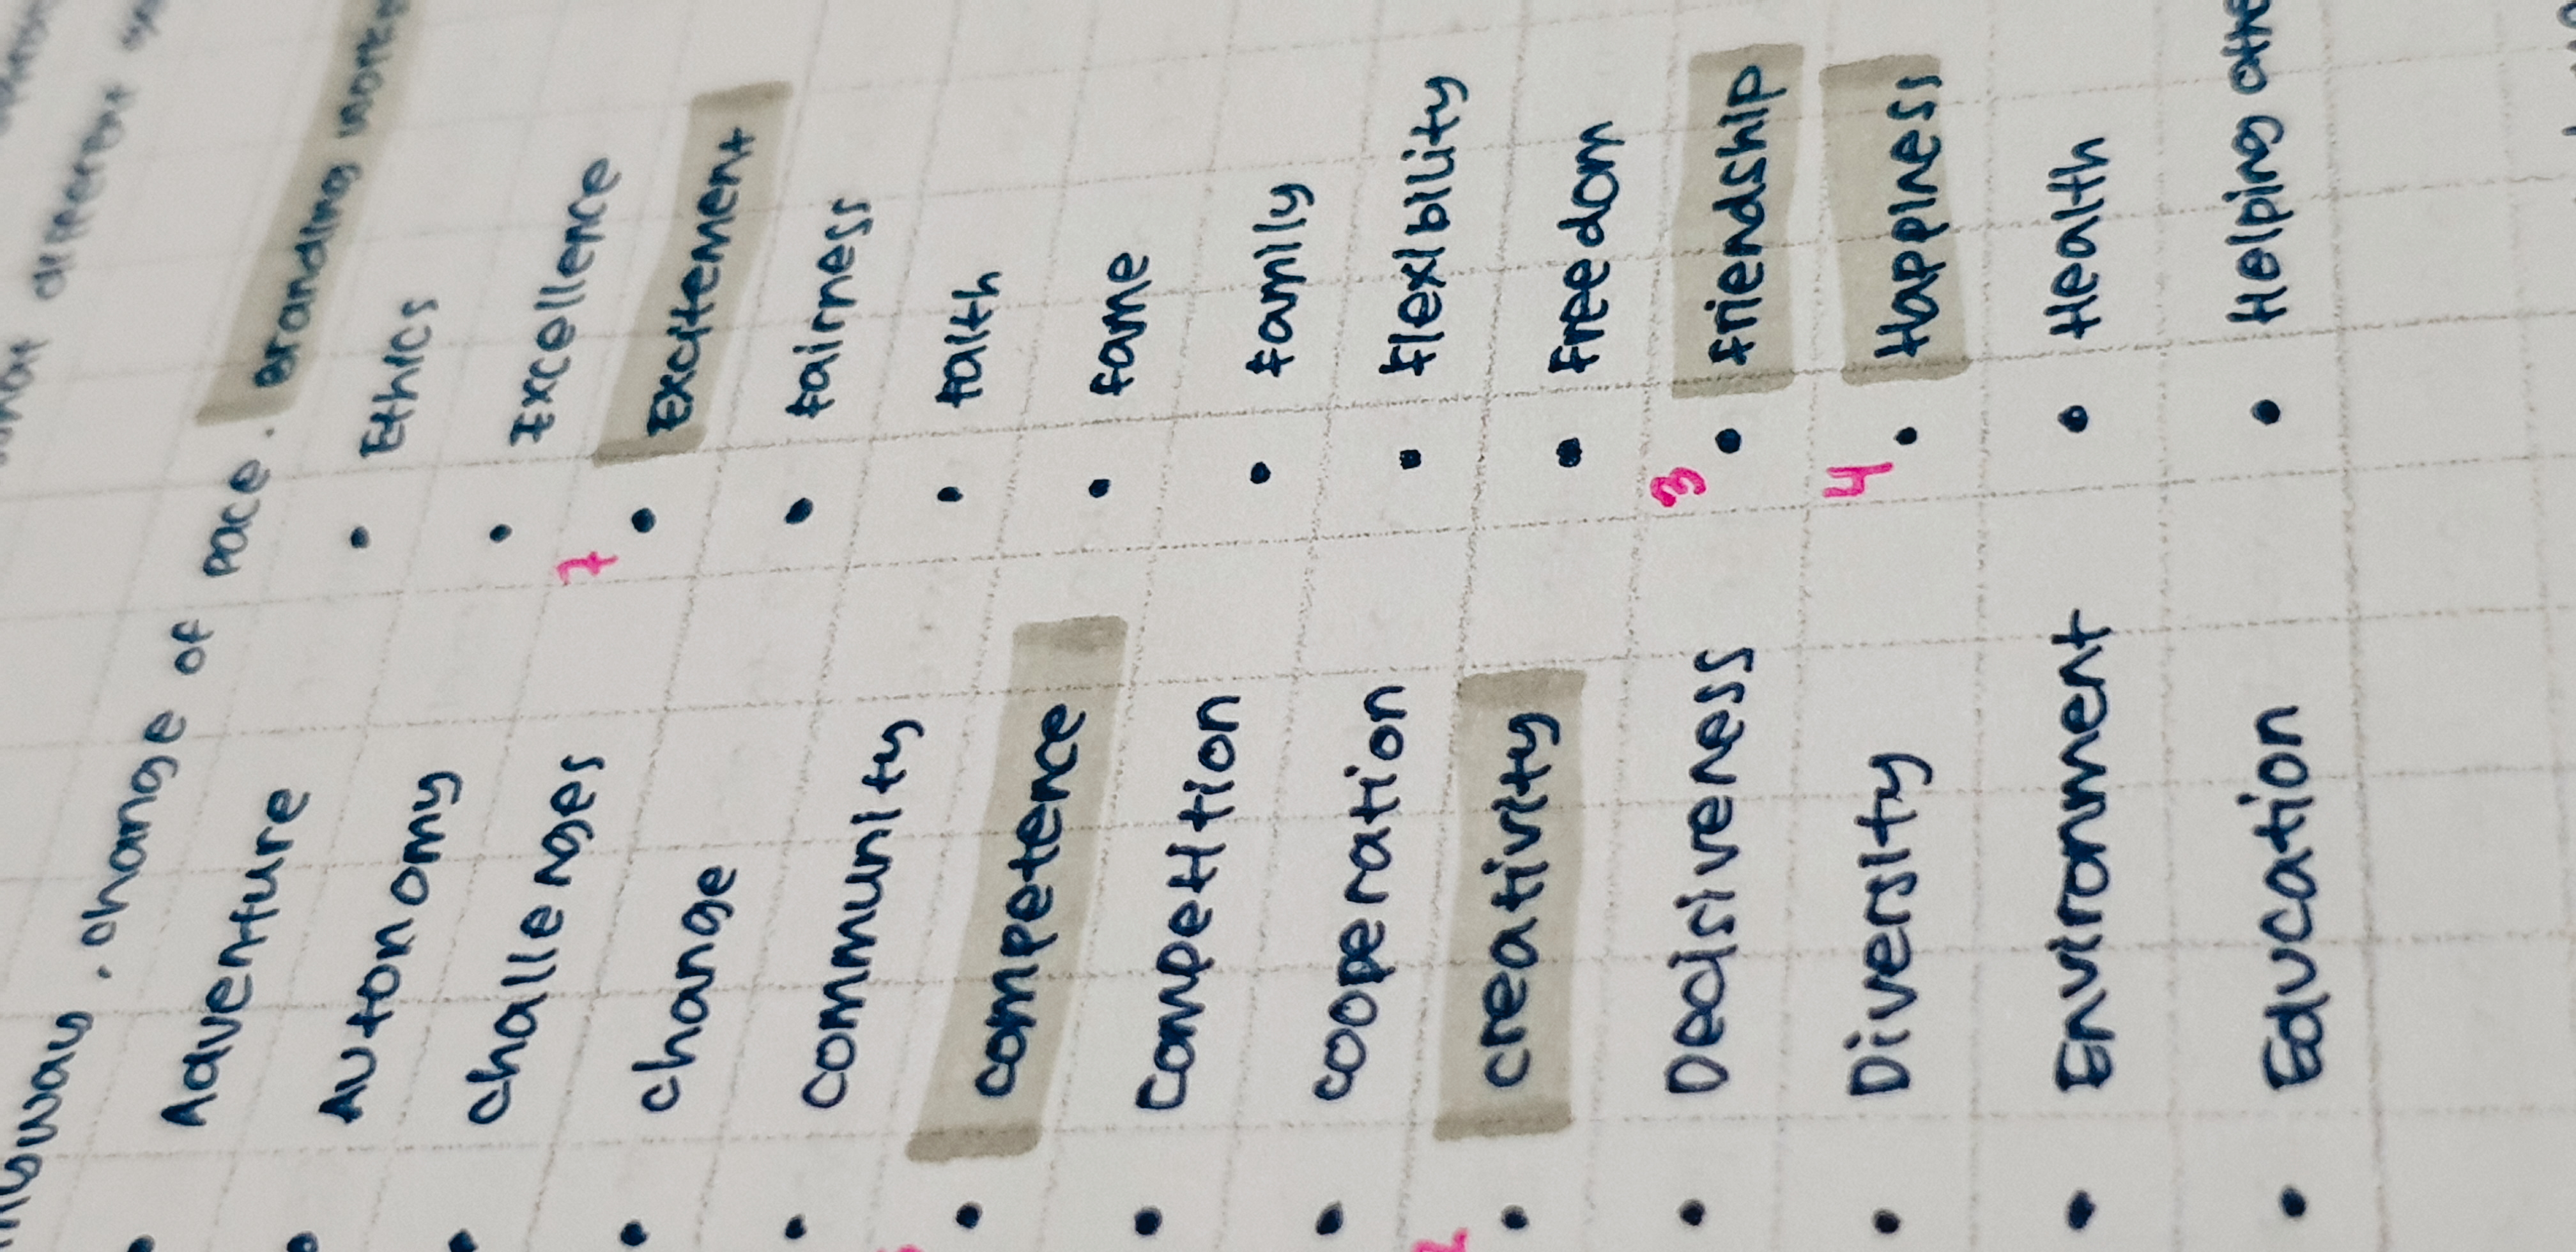 . change of pace. Branding work
Adventure
Autonomy
challenges
change
community
competence
Competition
cooperation
creativity
Decisiveness
Diversity
Environment
Education
Ethics
Excellence
7 Excitement
fairness
faith
fame
family
flexibility
Freedom
3 Friendship
4 Happiness
Health
Helping